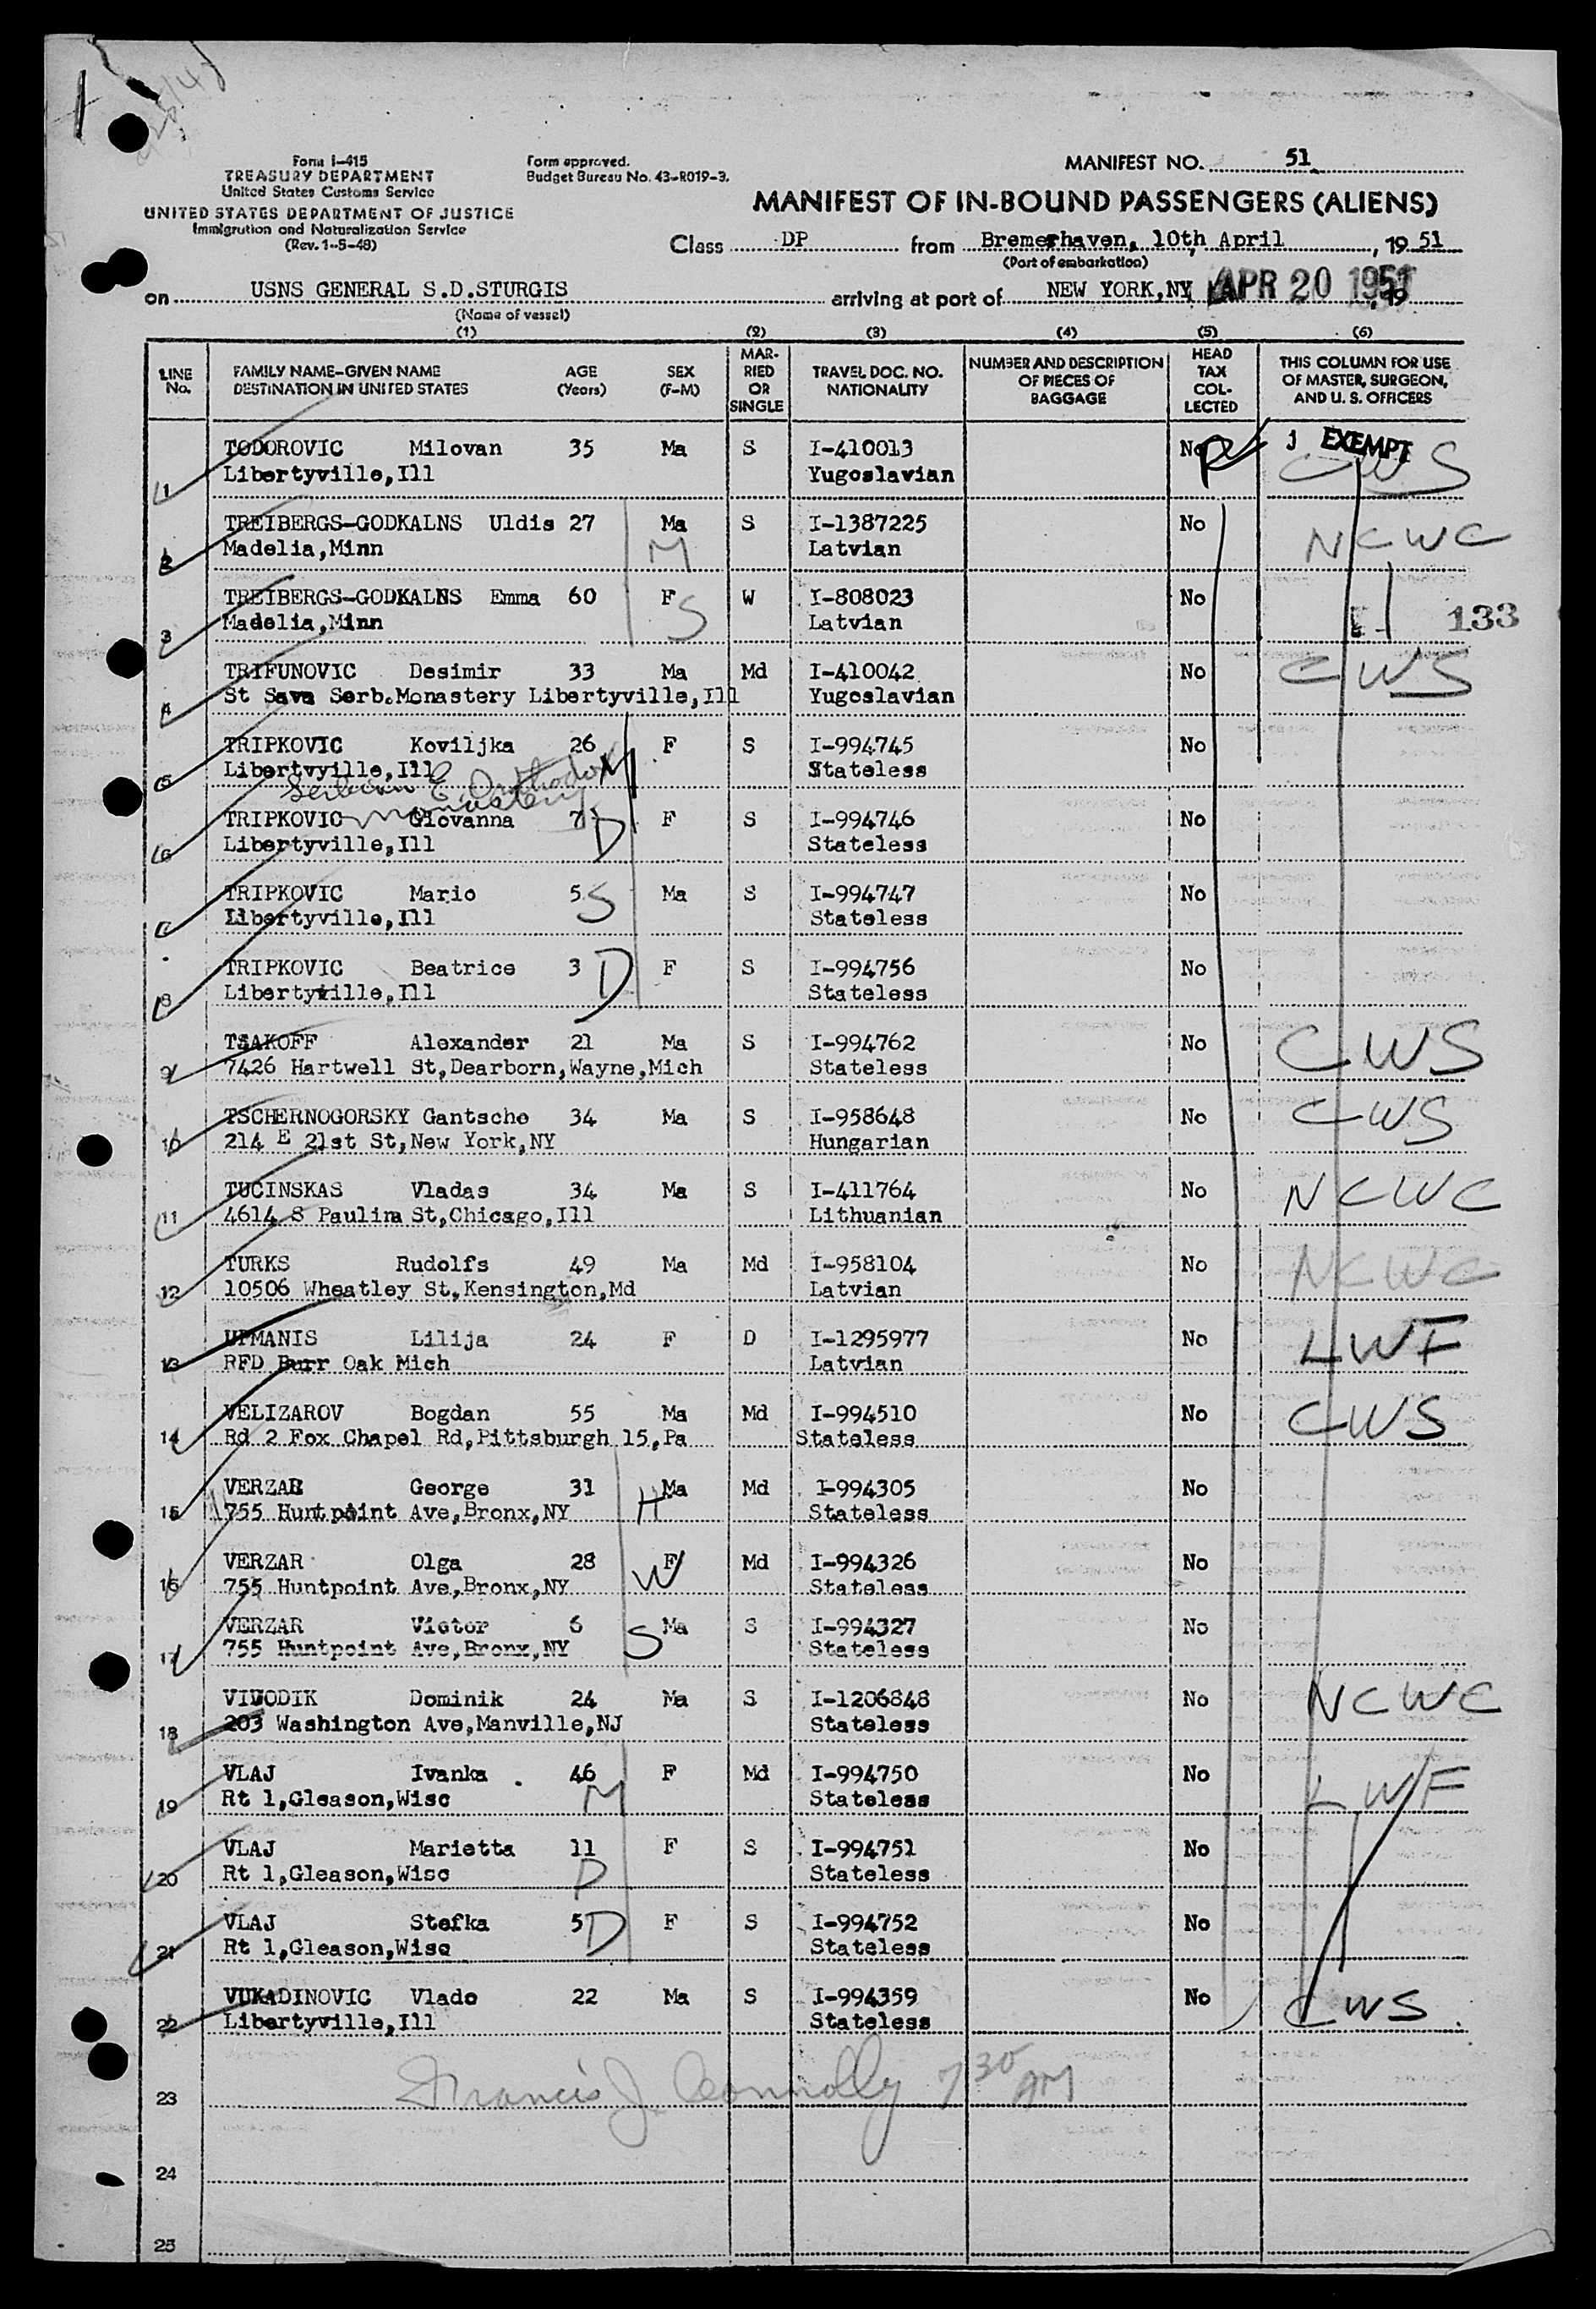 Form I-415
TREASURY DEPARTMENT
United States Customs Service
UNITED STATES DEPARTMENT OF JUSTICE
Immigration and Naturalization Service
(Rev. 1-5-48)
Form approved.
Budget Bureau No. 43-R019-3.
MANIFEST NO. 51
MANIFEST OF IN-BOUND PASSENGERS (ALIENS)
Class DP from Bremerhaven, 10th April, 19 51
(Port of embarkation)
on USNS GENERAL S.D.STURGIS arriving at port of NEW YORK,NY APR 20 1951
(Name of vessel)
(1) (2) (3) (4) (5) (6)
LINE No. FAMILY NAME-GIVEN NAME DESTINATION IN UNITED STATES AGE (Years) SEX (F-M) MARRIED OR SINGLE TRAVEL DOC. NO. NATIONALITY NUMBER AND DESCRIPTION OF PIECES OF BAGGAGE HEAD TAX COLLECTED THIS COLUMN FOR USE OF MASTER, SURGEON, AND U. S. OFFICERS
1 TODOROVIC Milovan 35 Ma S I-410013 No EXEMPT CWS
Libertyville,Ill Yugoslavian
2 TREIBERGS-GODKALNS Uldis 27 Ma S I-1387225 No NCWC
Madelia,Minn M Latvian
3 TREIBERGS-GODKALNS Emma 60 F W I-808023 No 133
Madelia,Minn S Latvian
4 TRIFUNOVIC Desimir 33 Ma Md I-410042 No CWS
St Sava Serb.Monastery Libertyville,Ill Yugoslavian
5 TRIPKOVIC Koviljka 26 M F S I-994745 No
Libertyville,Ill Stateless
Serbian E. Orthodox
Monastery
6 TRIPKOVIC Giovanna 7 D F S I-994746 No
Libertyville,Ill Stateless
7 TRIPKOVIC Mario 5 S Ma S I-994747 No
Libertyville,Ill Stateless
8 TRIPKOVIC Beatrice 3 D F S I-994756 No
Libertyville,Ill Stateless
9 TSAKOFF Alexander 21 Ma S I-994762 No CWS
7426 Hartwell St,Dearborn,Wayne,Mich Stateless
10 TSCHERNOGORSKY Gantscho 34 Ma S I-958648 No CWS
214 E 21st St,New York,NY Hungarian
11 TUCINSKAS Vladas 34 Ma S I-411764 No NCWC
4614 S Paulina St,Chicago,Ill Lithuanian
12 TURKS Rudolfs 49 Ma Md I-958104 No NCWC
10506 Wheatley St,Kensington,Md Latvian
13 UPMANIS Lilija 24 F D I-1295977 No LWF
RFD Burr Oak Mich Latvian
14 VELIZAROV Bogdan 55 Ma Md I-994510 No CWS
Rd 2 Fox Chapel Rd,Pittsburgh 15,Pa Stateless
15 VERZAR George 31 H Ma Md I-994305 No
755 Huntpoint Ave,Bronx,NY Stateless
16 VERZAR Olga 28 W F Md I-994326 No
755 Huntpoint Ave,Bronx,NY Stateless
17 VERZAR Victor 6 S Ma S I-994327 No
755 Huntpoint Ave,Bronx,NY Stateless
18 VIVODIK Dominik 24 Ma S I-1206848 No NCWC
203 Washington Ave,Manville,NJ Stateless
19 VLAJ Ivanka 46 F Md I-994750 No LWF
Rt 1,Gleason,Wisc M Stateless
20 VLAJ Marietta 11 F S I-994751 No
Rt 1,Gleason,Wisc D Stateless
21 VLAJ Stefka 5 D F S I-994752 No
Rt 1,Gleason,Wisc Stateless
22 VUKADINOVIC Vlado 22 Ma S I-994359 No CWS
Libertyville,Ill Stateless
23 Francis J. Connolly 7 30 AM
24
25